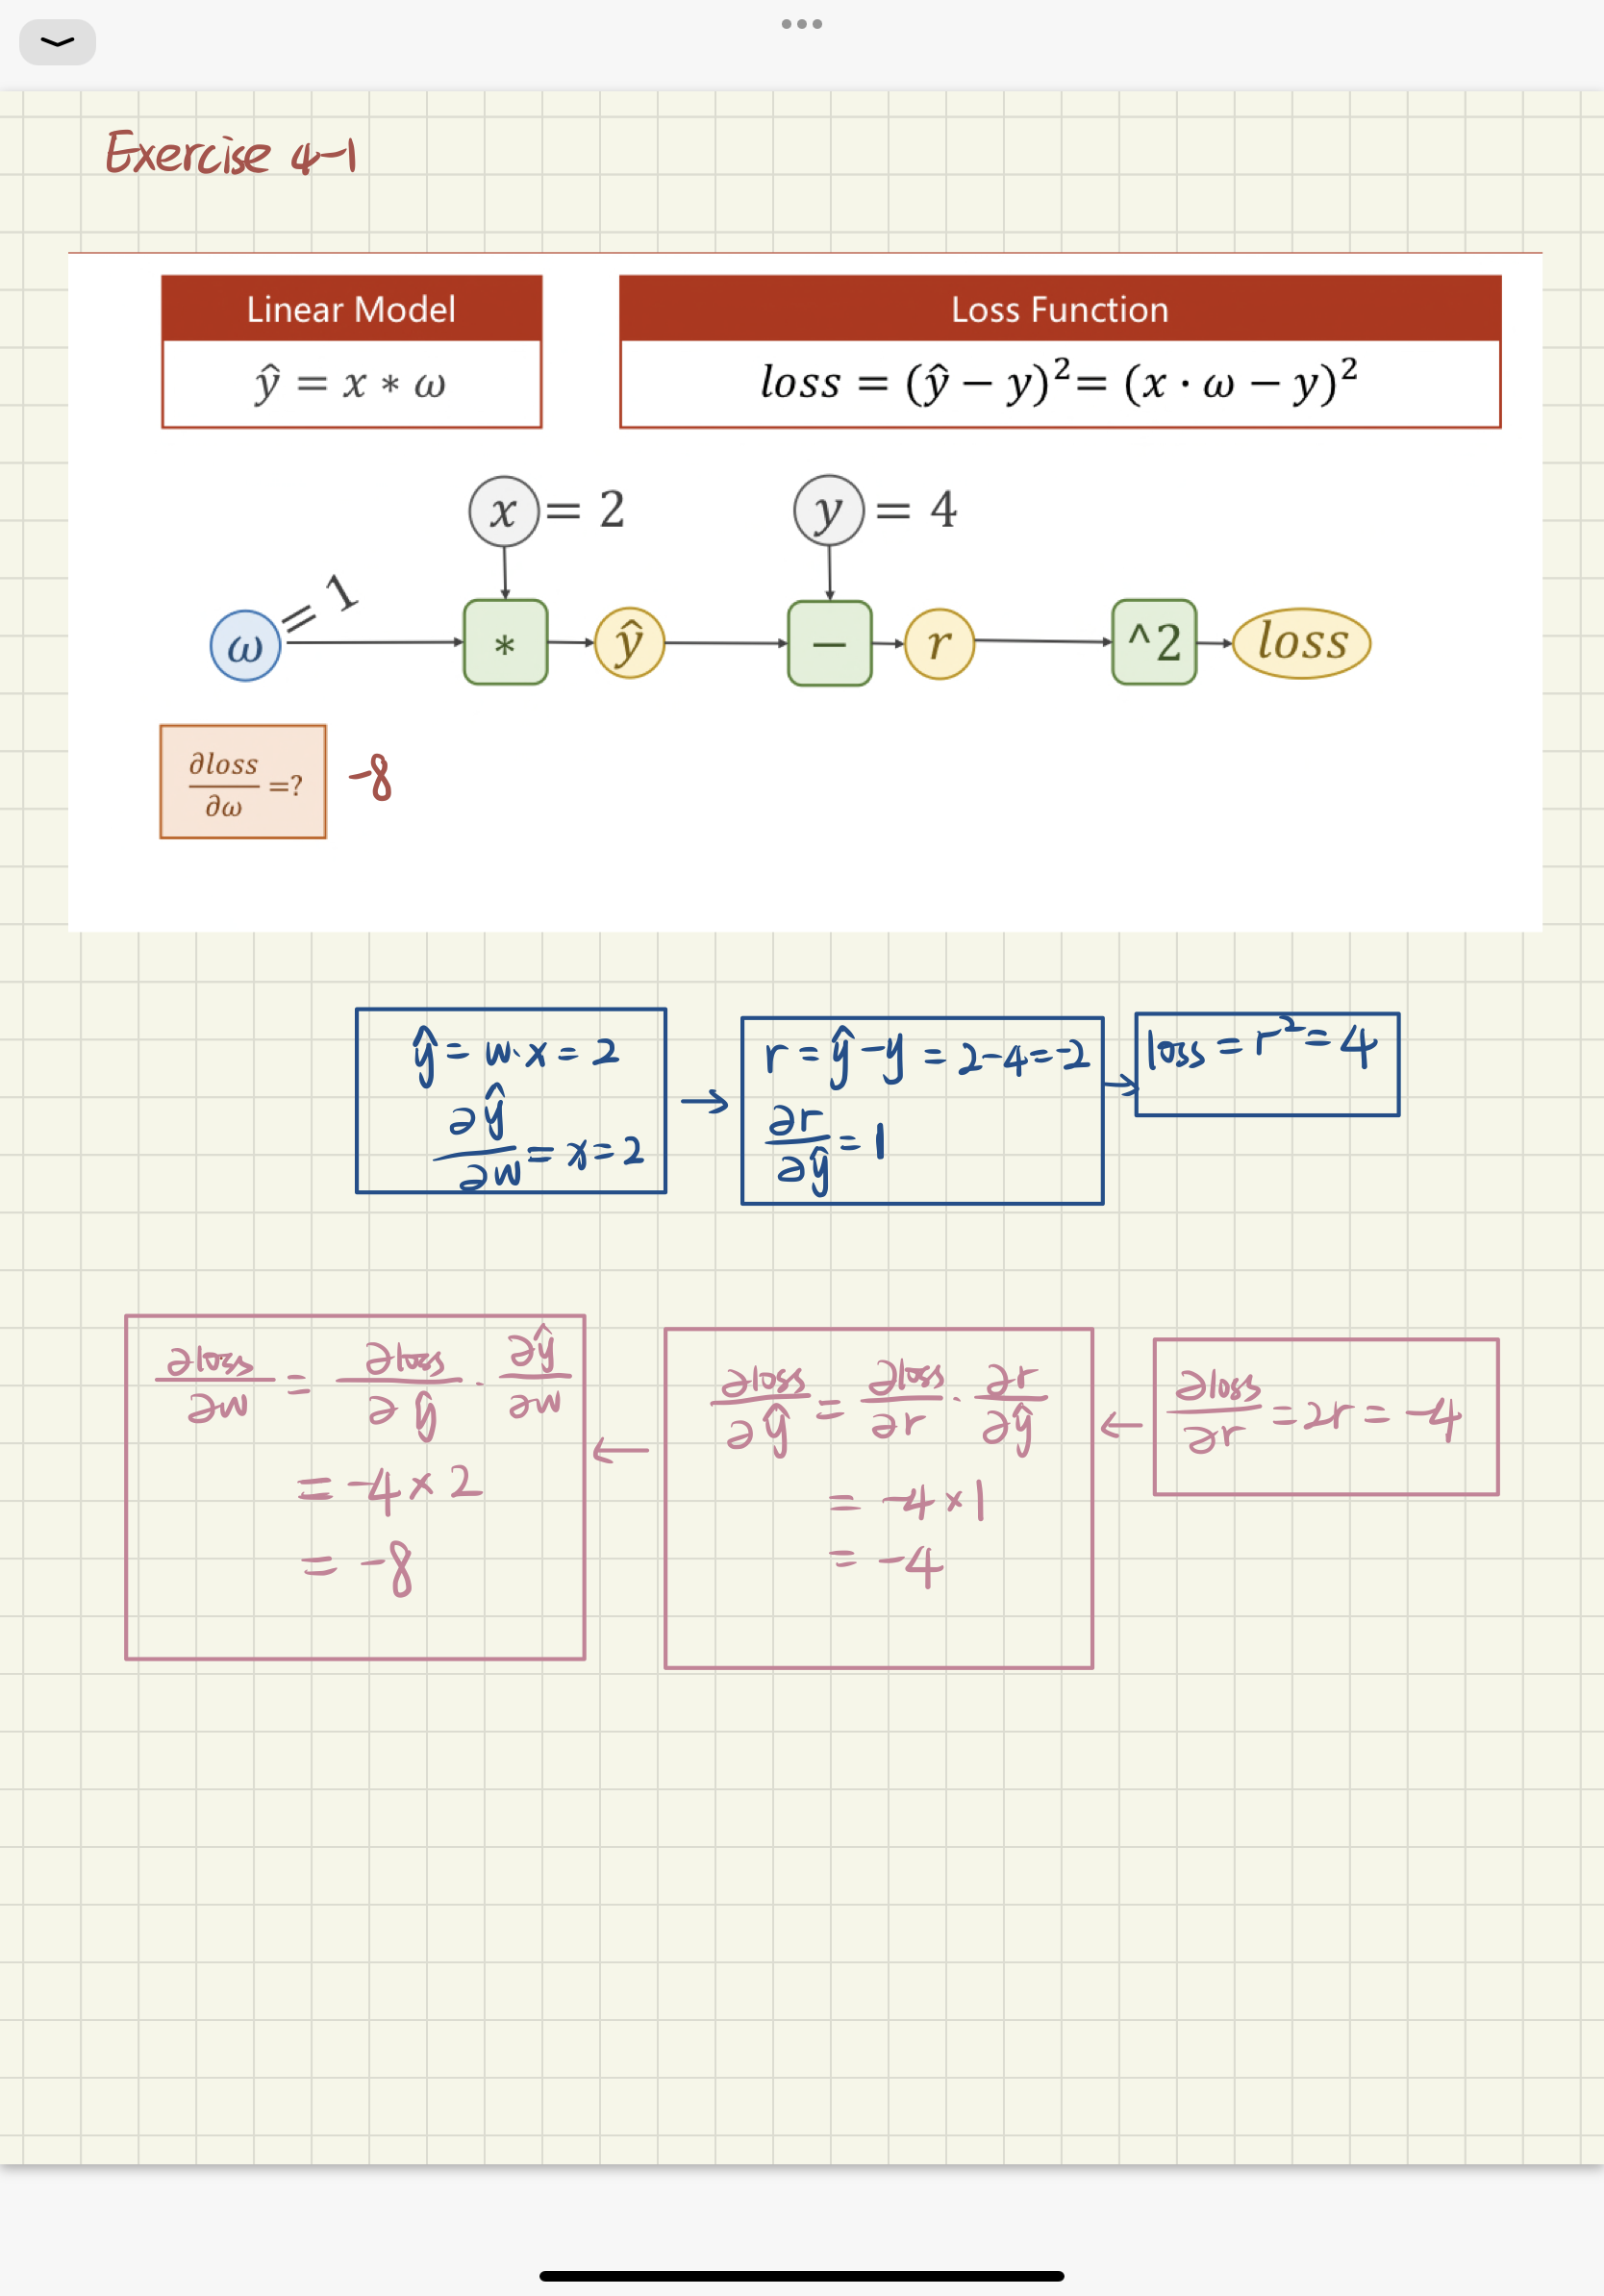 Exercise 4-1
Linear Model
ŷ = x * ω
Loss Function
loss = (ŷ − y)²= (x · ω − y)²
x = 2
y = 4
ω = 1
*
ŷ
−
r
^2
loss
∂loss/∂ω =?
-8
ŷ = w·x = 2
∂ŷ/∂w = x = 2
→
r = ŷ - y = 2-4=-2
∂r/∂ŷ = 1
→
loss = r² = 4
∂loss/∂w = ∂loss/∂ŷ · ∂ŷ/∂w
= -4 × 2
= -8
←
∂loss/∂ŷ = ∂loss/∂r · ∂r/∂ŷ
= -4 × 1
= -4
←
∂loss/∂r = 2r = -4